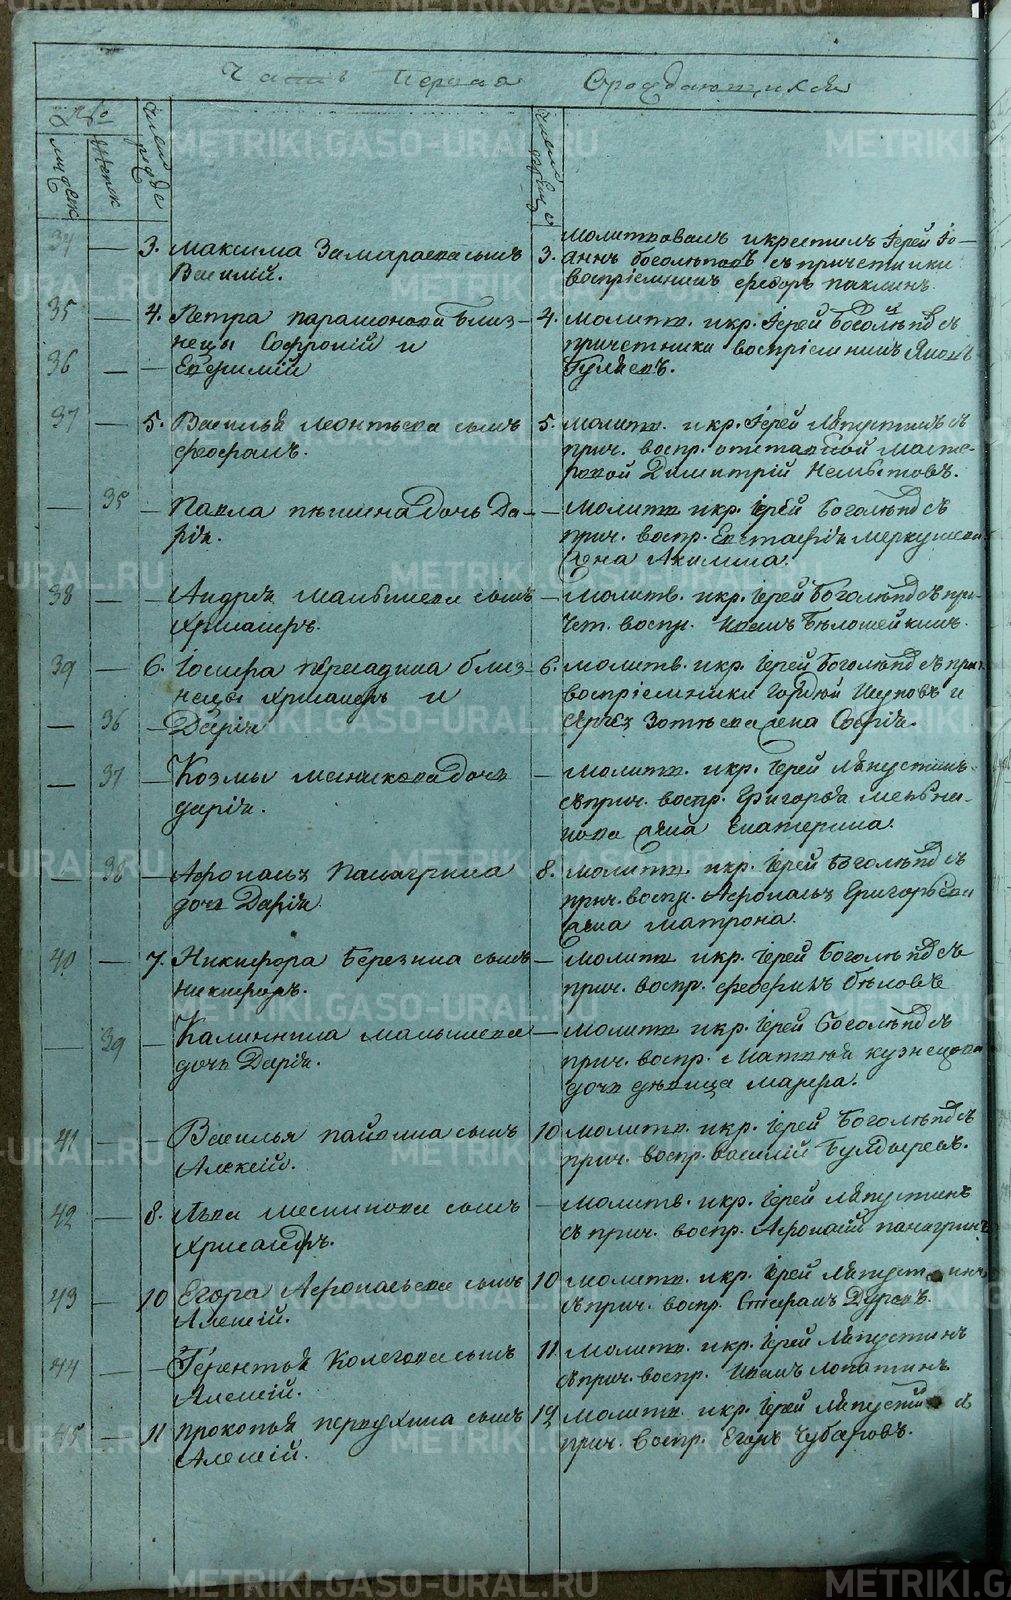 Часть Первая О рождающихся
№
мужск
женск
число рожде
число крещен
34 — 3. Максима Замараева сынъ
Василий.
3. Молитвовалъ и крестилъ Іерей Іо-
аннъ Боголѣповъ съ причетники
воспріемникъ Федоръ Паклинъ.
35 4. Петра Парамонова близ-
нецы Софроній и
36 — — Евфимій
4. Молитв. и кр. Іерей Боголѣповъ съ
причетники воспріемникъ Яковъ
Гуляевъ.
37 — 5. Василья Леонтьева сынъ
Феофанъ.
5. Молитв. и кр. Іерей Ляпустинъ съ
прич. воспр. отставной масте-
ровой Димитрій
— 35 — Павла Пѣшина дочь Да-
рія.
— Молитв. и кр. Іерей Боголѣповъ съ
прич. воспр. Евстафія Меркушева
жена Акилина.
38 — — Андрея Малышева сынъ
Хрисанфъ.
— Молитв. и кр. Іерей Боголѣповъ съ при-
чет. воспр. Иванъ Бѣлошейкинъ.
39 — 6. Іосифа близ-
нецы Хрисанфъ и
— 36 — Дарія
6. Молитв. и кр. Іерей Боголѣповъ съ прич.
воспріемники Гордѣй и
Зотѣева жена Софія.
— 37 — Козмы Меншикова дочь
Дарія.
— Молитв. и кр. Іерей Ляпустинъ
съ прич. воспр. Григорья Мельни-
кова жена Екатерина.
— 38 — Афонасья Панагрина
дочь Дарія.
8. Молитв. и кр. Іерей Боголѣповъ съ
прич. воспр. Афонасья Григорьева
жена Матрона.
40 — 7. Никифора Березина сынъ
Никифоръ.
— Молитв. и кр. Іерей Боголѣповъ съ
прич. воспр. Бѣловъ
— 39 — Калинника Малышева
дочь Дарія.
— Молитв. и кр. Іерей Боголѣповъ съ
прич. воспр. Матвѣя Кузнецова
дочь дѣвица Марфа.
41 — — Василья сынъ
Алексій.
10 Молитв. и кр. Іерей Боголѣповъ съ
прич. воспр. Василій Булдыревъ.
42 — 8. Льва сынъ
Хрисанфъ.
— Молитв. и кр. Іерей Ляпустинъ
съ прич. воспр. Афонасій Панагринъ
43 — 10 Егора Афонасьева сынъ
Алексій.
10 Молитв. и кр. Іерей Ляпустинъ
съ прич. воспр. Стефанъ
44 — — Терентья Колегова сынъ
Алексій.
11. Молитв. и кр. Іерей Ляпустинъ
съ прич. воспр. Иванъ Лопатинъ
45 — 11 Прокопья Первухина сынъ
Алексій.
12 Молитв. и кр. Іерей Ляпустинъ съ
прич. воспр. Егоръ Чубаровъ.
METRIKI.GASO-URAL.RU